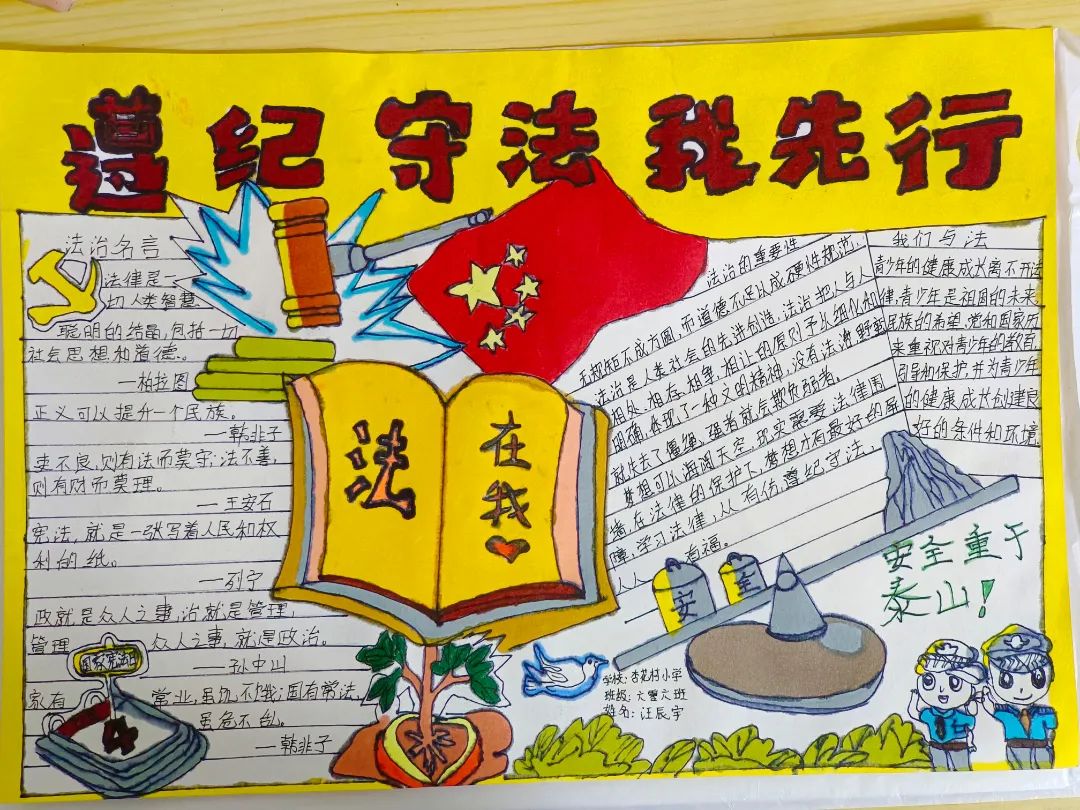 遵纪守法我先行
法治名言
法律是一
切人类智慧
聪明的结晶,包括一切
社会思想和道德。
—柏拉图
正义可以提升一个民族。
—韩非子
吏不良,则有法而莫守;法不善,
则有财而莫理。
—王安石
宪法,就是一张写着人民和权
利的纸。
—列宁
政就是众人之事,治就是管理,
管理 众人之事,就是政治。
—孙中山
家有 常业,虽饥不饿;国有常法,
虽危不乱。
—韩非子
国家宪法
4
法
在我
法治的重要性
无规矩不成方圆,而道德不足以成硬性规范,
法治是人类社会的先进创造,法治把人与人
相处、相存、相尊、相让的原则予以细化和
明确,体现了一种文明精神,没有法治野蛮
就失去了震慑,强者就会欺负弱者。
梦想可以海阔天空,现实需要法律围
墙,在法律的保护下,梦想才有最好的屏
障,学习法律,从 有信,遵纪守法,
人人 有福。
我们与法
青少年的健康成长离不开法
律,青少年是祖国的未来,
民族的希望,党和国家历
来重视对青少年的教育、
引导和保护,并为青少年
的健康成长创建良
好的条件和环境
安全
安全重于
泰山!
学校:杏花村小学
班级:六
姓名:汪辰宇